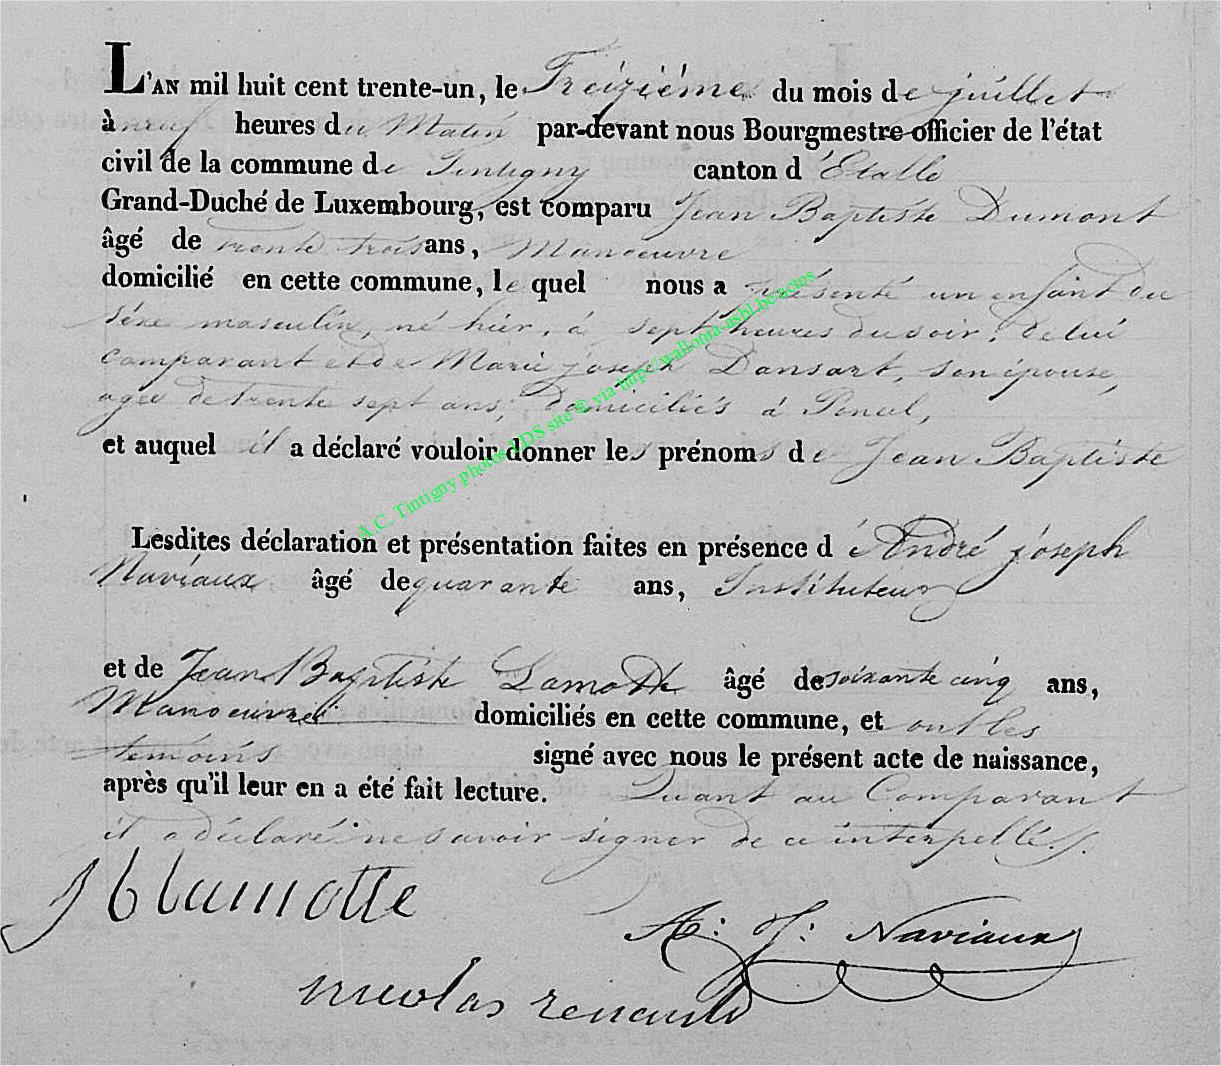 L'AN mil huit cent trente-un, le Treizième du mois de juillet
à neuf heures du Matin par-devant nous Bourgmestre officier de l'état
civil de la commune de Tintigny canton d'Etalle
Grand-Duché de Luxembourg, est comparu Jean Baptiste Dumont
âgé de trente trois ans, Manoeuvre
domicilié en cette commune, lequel nous a présenté un enfant du
séxe masculin, né hier, à sept heures du soir, de lui
Comparant et de Marie joseph Dansart, son épouse,
agée de trente sept ans, Domiciliés à Poncel,
et auquel il a déclaré vouloir donner les prénoms de Jean Baptiste
Lesdites déclaration et présentation faites en présence d'André joseph
Naviaux âgé de quarante ans, Instituteur
et de Jean Baptiste Lamotte âgé de soixante cinq ans,
Manoeuvre domiciliés en cette commune, et ont les
témoins signé avec nous le présent acte de naissance,
après qu'il leur en a été fait lecture. Quant au Comparant
il a déclaré ne savoir signer de ce interpellé.
J b lamotte
A: J: Naviaux
nicolas renauld
A.C. Tintigny photos LDS site @ via http://wallonia-asbl.be/actes